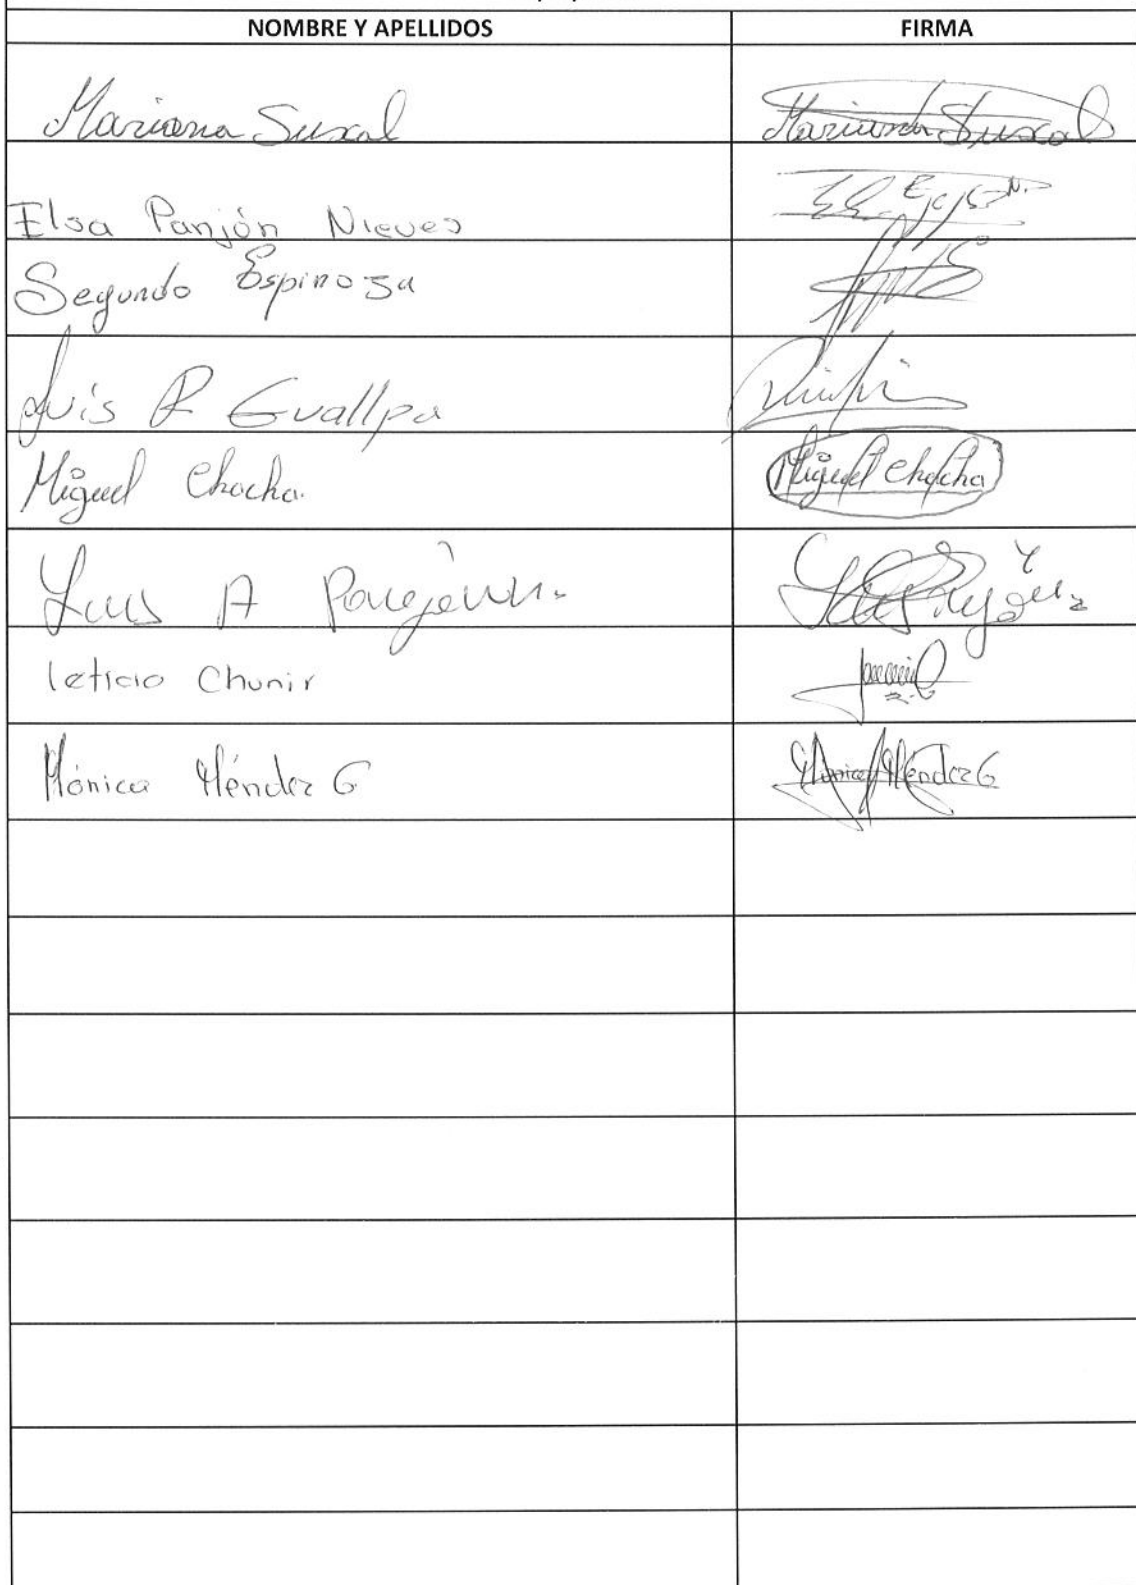 NOMBRE Y APELLIDOS FIRMA
Mariana Suxal Mariana Suxal
Elsa Panjón Nieves
Segundo Espinoza
Luis R Guallpa
Miguel Chocha. Miguel Chocha
Luis A
leticia Chunir
Mónica Méndez G Mónica Méndez G